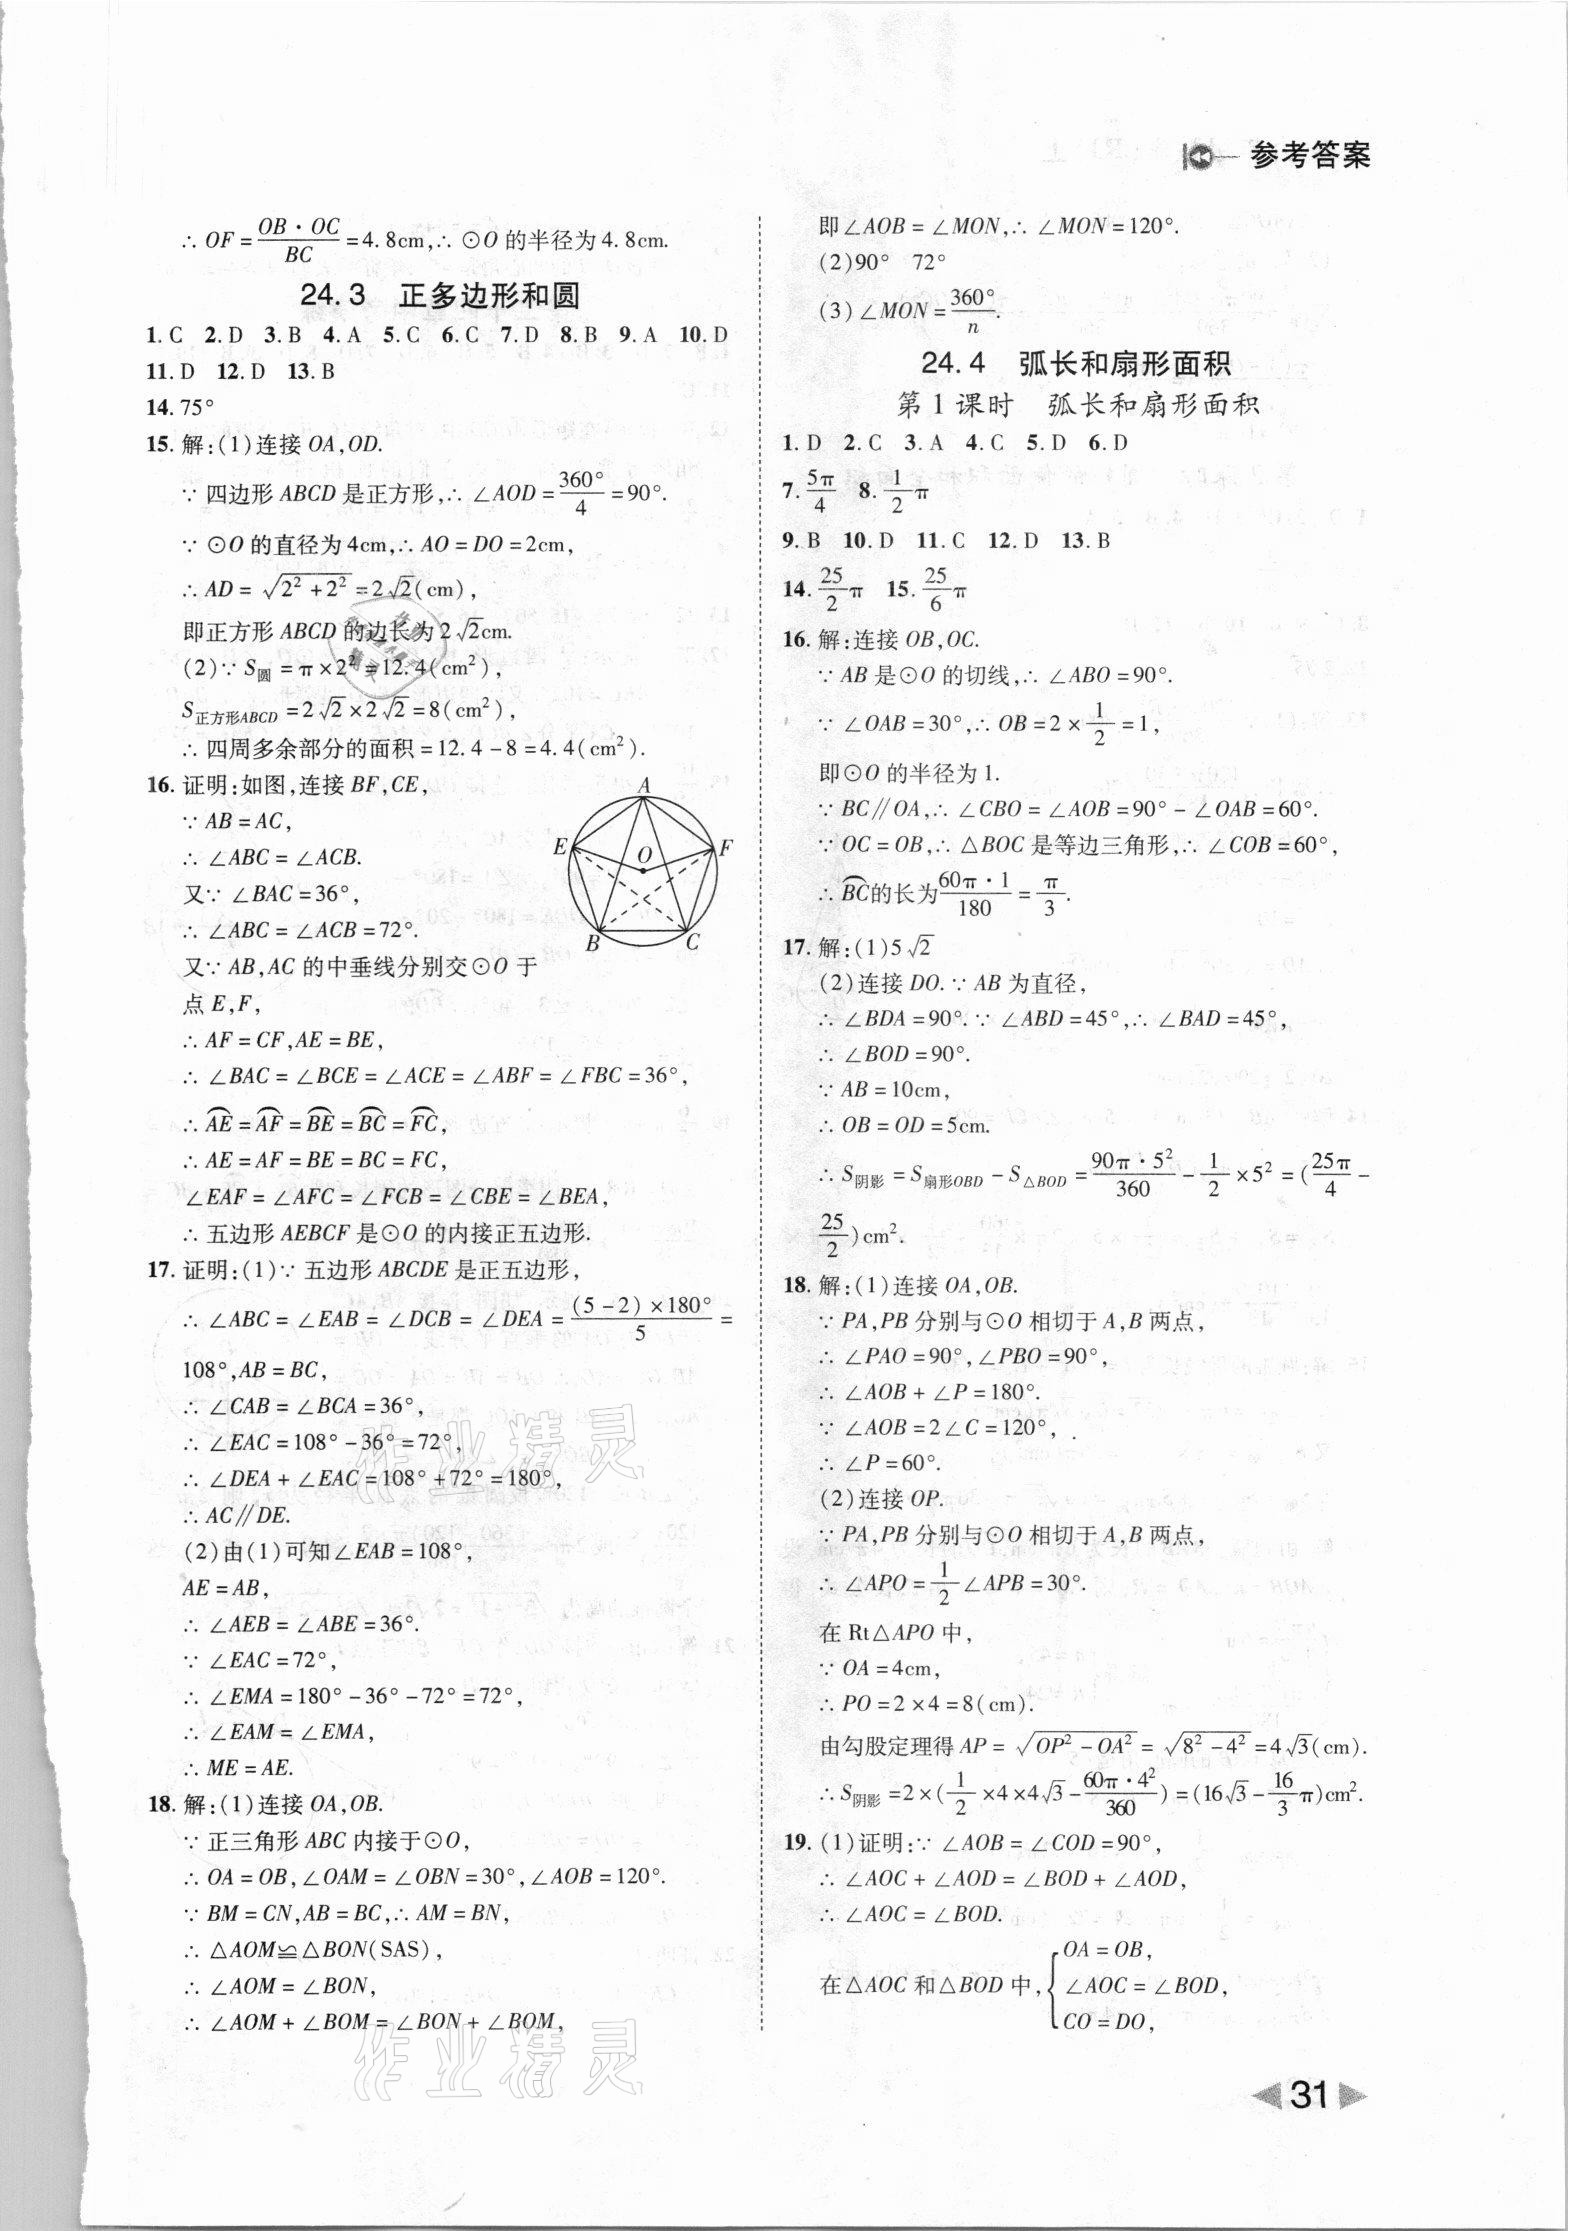 参考答案
∴ OF = OB·OC/BC = 4.8cm,∴ ⊙O 的半径为 4.8cm.
24.3 正多边形和圆
1. C 2. D 3. B 4. A 5. C 6. C 7. D 8. B 9. A 10. D
11. D 12. D 13. B
14. 75°
15. 解:(1)连接 OA,OD.
∵ 四边形 ABCD 是正方形,∴ ∠AOD = 360°/4 = 90°.
∵ ⊙O 的直径为 4cm,∴ AO = DO = 2cm,
∴ AD = √(2² + 2²) = 2√2(cm),
即正方形 ABCD 的边长为 2√2cm.
(2)∵ S圆 = π × 2² = 12.4(cm²),
S正方形ABCD = 2√2 × 2√2 = 8(cm²),
∴ 四周多余部分的面积 = 12.4 - 8 = 4.4(cm²).
16. 证明:如图,连接 BF,CE,
∵ AB = AC,
∴ ∠ABC = ∠ACB.
又∵ ∠BAC = 36°,
∴ ∠ABC = ∠ACB = 72°.
又∵ AB,AC 的中垂线分别交⊙O 于
点 E,F,
∴ AF = CF,AE = BE,
∴ ∠BAC = ∠BCE = ∠ACE = ∠ABF = ∠FBC = 36°,
∴ ⌒AE = ⌒AF = ⌒BE = ⌒BC = ⌒FC,
∴ AE = AF = BE = BC = FC,
∠EAF = ∠AFC = ∠FCB = ∠CBE = ∠BEA,
∴ 五边形 AEBCF 是⊙O 的内接正五边形.
A
E
O
F
B
C
17. 证明:(1)∵ 五边形 ABCDE 是正五边形,
∴ ∠ABC = ∠EAB = ∠DCB = ∠DEA = (5-2)×180°/5 =
108°,AB = BC,
∴ ∠CAB = ∠BCA = 36°,
∴ ∠EAC = 108° - 36° = 72°,
∴ ∠DEA + ∠EAC = 108° + 72° = 180°,
∴ AC∥DE.
(2)由(1)可知∠EAB = 108°,
AE = AB,
∴ ∠AEB = ∠ABE = 36°.
∵ ∠EAC = 72°,
∴ ∠EMA = 180° - 36° - 72° = 72°,
∴ ∠EAM = ∠EMA,
∴ ME = AE.
18. 解:(1)连接 OA,OB.
∵ 正三角形 ABC 内接于⊙O,
∴ OA = OB,∠OAM = ∠OBN = 30°,∠AOB = 120°.
∵ BM = CN,AB = BC,∴ AM = BN,
∴ △AOM≌△BON(SAS),
∴ ∠AOM = ∠BON,
∴ ∠AOM + ∠BOM = ∠BON + ∠BOM,
即∠AOB = ∠MON,∴ ∠MON = 120°.
(2)90° 72°
(3)∠MON = 360°/n.
24.4 弧长和扇形面积
第 1 课时 弧长和扇形面积
1. D 2. C 3. A 4. C 5. D 6. D
7. 5π/4 8. 1/2 π
9. B 10. D 11. C 12. D 13. B
14. 25/2 π 15. 25/6 π
16. 解:连接 OB,OC.
∵ AB 是⊙O 的切线,∴ ∠ABO = 90°.
∵ ∠OAB = 30°,∴ OB = 2 × 1/2 = 1,
即⊙O 的半径为 1.
∵ BC∥OA,∴ ∠CBO = ∠AOB = 90° - ∠OAB = 60°.
∵ OC = OB,∴ △BOC 是等边三角形,∴ ∠COB = 60°,
∴ ⌒BC的长为 60π·1/180 = π/3.
17. 解:(1)5√2
(2)连接 DO. ∵ AB 为直径,
∴ ∠BDA = 90°. ∵ ∠ABD = 45°,∴ ∠BAD = 45°,
∴ ∠BOD = 90°.
∵ AB = 10cm,
∴ OB = OD = 5cm.
∴ S阴影 = S扇形OBD - S△BOD = 90π·5²/360 - 1/2 × 5² = (25π/4 -
25/2)cm².
18. 解:(1)连接 OA,OB.
∵ PA,PB 分别与⊙O 相切于 A,B 两点,
∴ ∠PAO = 90°,∠PBO = 90°,
∴ ∠AOB + ∠P = 180°.
∵ ∠AOB = 2∠C = 120°,
∴ ∠P = 60°.
(2)连接 OP.
∵ PA,PB 分别与⊙O 相切于 A,B 两点,
∴ ∠APO = 1/2 ∠APB = 30°.
在 Rt△APO 中,
∵ OA = 4cm,
∴ PO = 2 × 4 = 8(cm).
由勾股定理得 AP = √(OP² - OA²) = √(8² - 4²) = 4√3(cm).
∴ S阴影 = 2 × (1/2 × 4 × 4√3 - 60π·4²/360) = (16√3 - 16/3 π)cm².
19. (1)证明:∵ ∠AOB = ∠COD = 90°,
∴ ∠AOC + ∠AOD = ∠BOD + ∠AOD,
∴ ∠AOC = ∠BOD.
在△AOC 和△BOD 中,{OA = OB,
∠AOC = ∠BOD,
CO = DO,
作业精灵
作业精灵
31